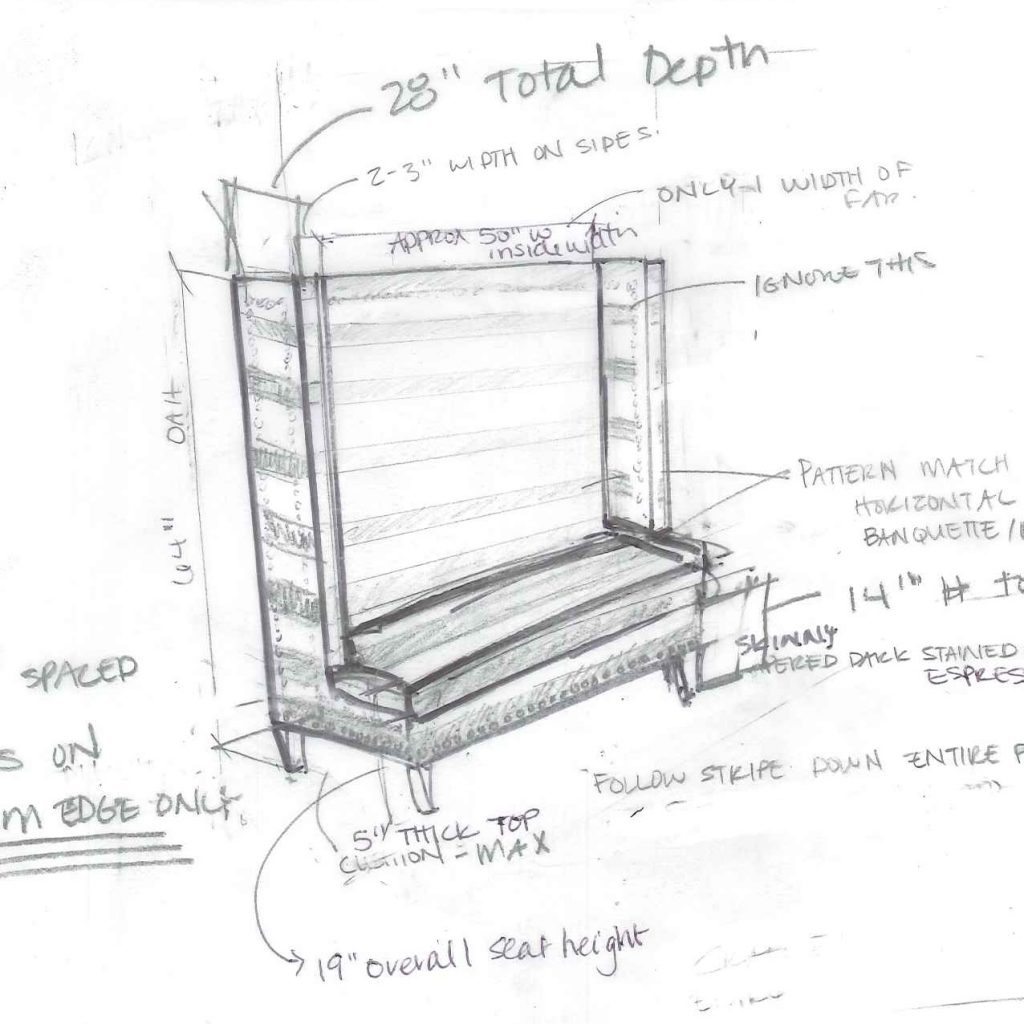 28" Total Depth
2-3" WIDTH ON SIDES.
ONLY 1 WIDTH OF
FAB.
APPROX 50" W
inside width
IGNORE THIS
OAH
64"
PATTERN MATCH
HORIZONTAL
BANQUETTE /
14" H
SKINNY
TAPERED DARK STAINED
ESPRES
SPACED
S ON
M EDGE ONLY.
FOLLOW STRIPE DOWN ENTIRE
5" THICK TOP
CUSHION = MAX
19" overall seat height